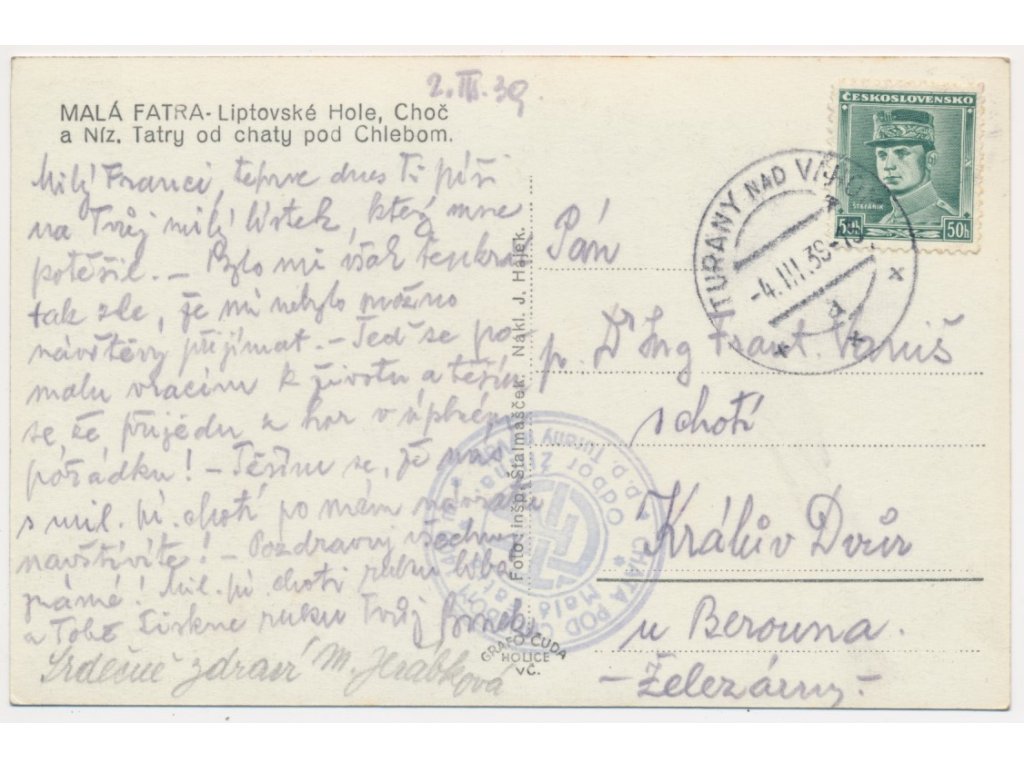 2. III. 39.
MALÁ FATRA - Liptovské Hole, Choč
a Níz. Tatry od chaty pod Chlebom.
Milý Franci, teprve dnes Ti píši
na Tvůj milý lístek, který mne
potěšil. – Bylo mi však tenkrát
tak zle, že mi nebylo možno
návštěvy přijímat. – Teď se po
malu vracím k životu a těším
se, že přijedu z hor v úplném
pořádku! – Těším se, že nás
s mil. pí. chotí po mém návratu
navštívíte! – Pozdravuj všechny
známé! Mil. pí. choti ruku líbá
a Tobě tiskne ruku Tvůj
Srdečně zdraví M. Jeřábková
ČESKOSLOVENSKO
ŠTEFÁNIK
50h 50h
TURANY NAD VÁHOM
-4.III.39-
a
Pán
p. Dr Ing Frant.
s chotí
Králův Dvůr
u Berouna.
- Železárny. -
Foto: inšp. Štalmašček. Nákl. J. Hájek.
CHATA POD CHLEBOM
p. p. Turany
Odbor
Malá Fatra
GRAFO ČUDA
HOLICE
VČ.